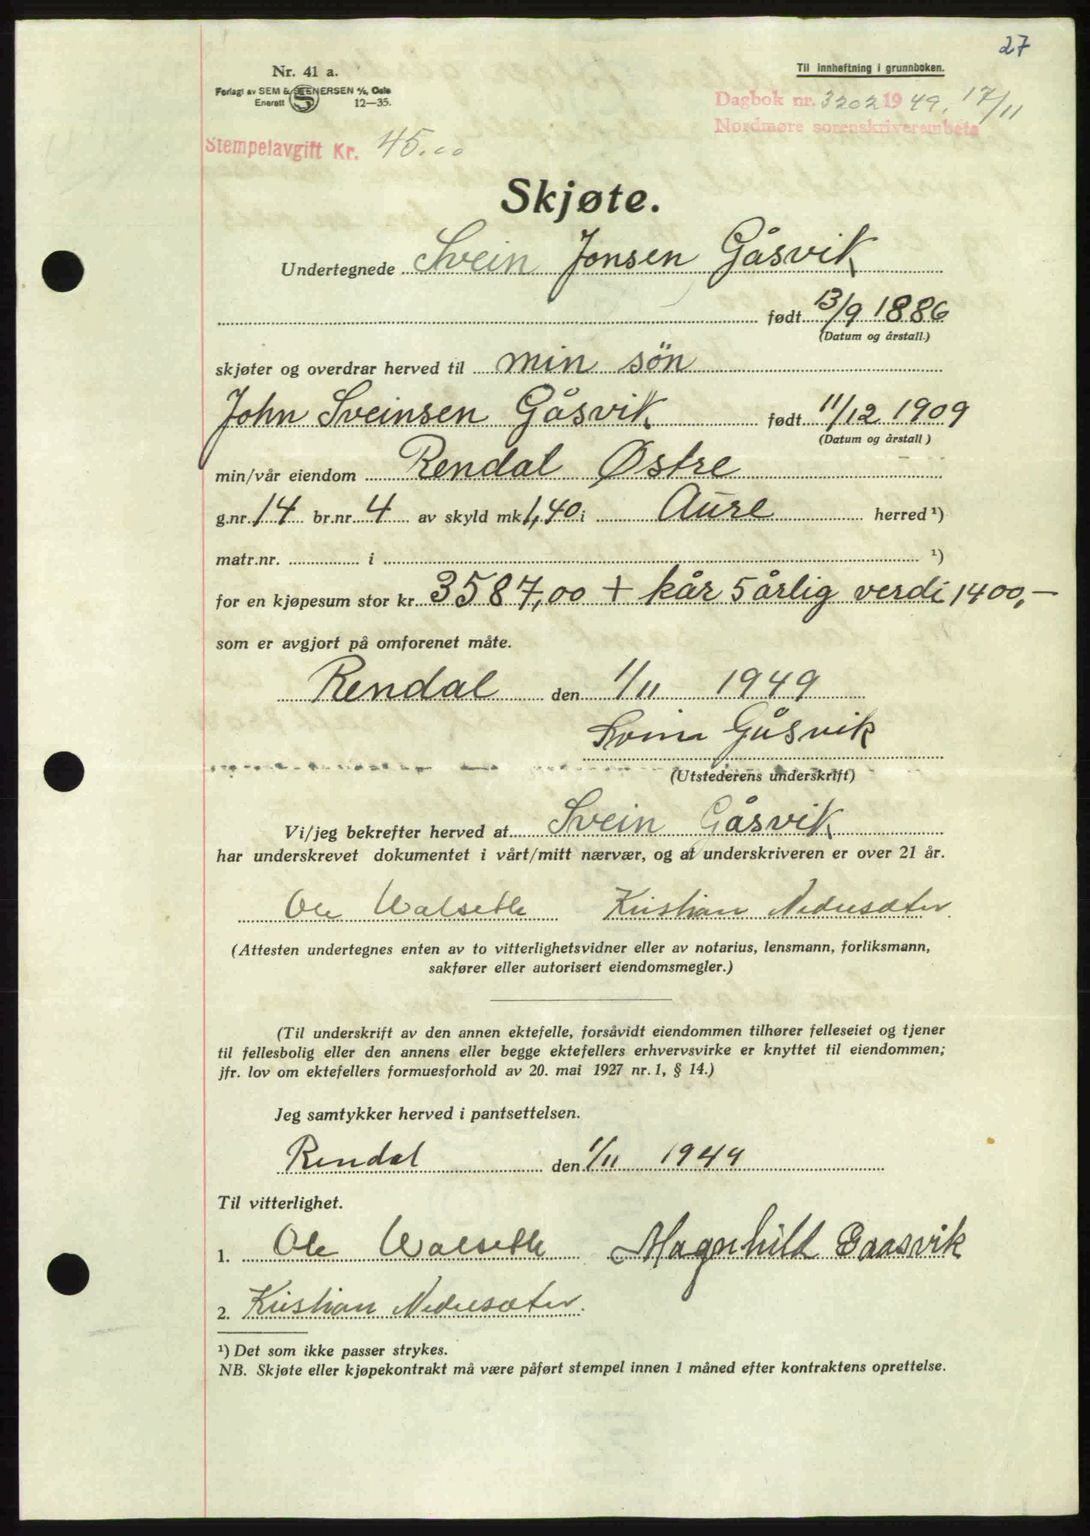 27
Nr. 41 a.
Forlagt av SEM & STENERSEN A/S, Oslo
Enerett 12—35.
Til innheftning i grunnboken.
Dagbok nr. 3202 1949, 17/11
Nordmøre sorenskriverembete
Stempelavgift Kr. 45.00
Skjøte.
Undertegnede Svein Jonsen Gåsvik
født 13/9 1886
(Datum og årstall.)
skjøter og overdrar herved til min sön
John Sveinsen Gåsvik født 11/12 1909
(Datum og årstall)
min/vår eiendom Rendal Østre
g.nr. 14 br.nr. 4 av skyld mk. 1,40 i Aure herred ¹)
matr.nr. i ¹)
for en kjøpesum stor kr. 3587,00 + kår 5 årlig verdi 1400,—
som er avgjort på omforenet måte.
Rendal den 1/11 1949
Svein Gåsvik
(Utstederens underskrift)
Vi/jeg bekrefter herved at Svein Gåsvik
har underskrevet dokumentet i vårt/mitt nærvær, og at underskriveren er over 21 år.
Ole Walseth Kristian Nedresæter
(Attesten undertegnes enten av to vitterlighetsvidner eller av notarius, lensmann, forliksmann,
sakfører eller autorisert eiendomsmegler.)
(Til underskrift av den annen ektefelle, forsåvidt eiendommen tilhører felleseiet og tjener
til fellesbolig eller den annens eller begge ektefellers erhvervsvirke er knyttet til eiendommen;
jfr. lov om ektefellers formuesforhold av 20. mai 1927 nr. 1, § 14.)
Jeg samtykker herved i pantsettelsen.
Rendal den 1/11 1949
Til vitterlighet.
1. Ole Walseth Magnhild Gaasvik
2. Kristian Nedresæter.
¹) Det som ikke passer strykes.
NB. Skjøte eller kjøpekontrakt må være påført stempel innen 1 måned efter kontraktens oprettelse.